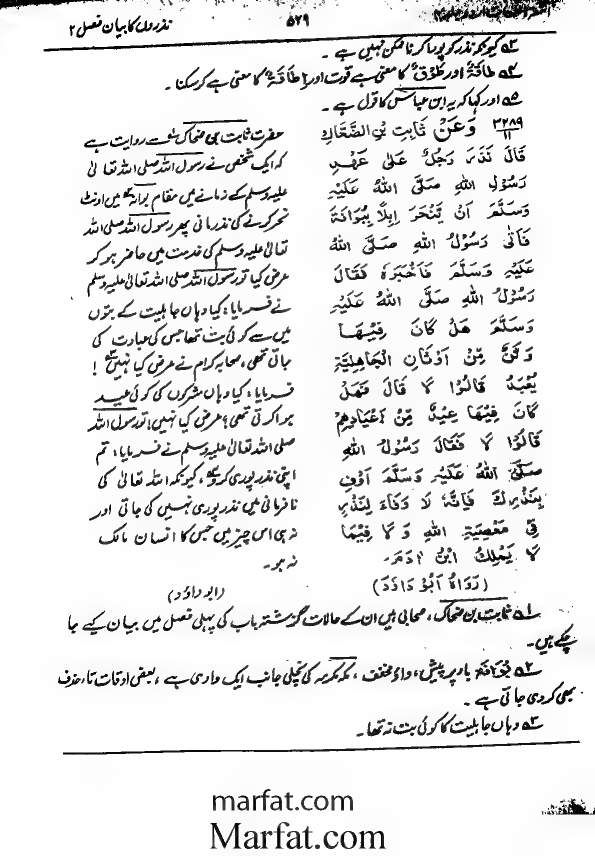 نذروں کا بیان فصل ۲
۵۲۹
۳ کیونکہ نذر کو پورا کرنا ممکن نہیں ہے ۔
۴ طَاقَۃٌ اور طَوْقٌ کا معنی ہے قوت اور اِطَاقَۃٌ کا معنی ہے کر سکنا ۔
۵ اور کہا کہ یہ ابن عباس کا قول ہے ۔
۳۲۸۹
۱۱
وَعَنْ ثَابِتِ بْنِ الضَّحَّاكِ
قَالَ نَذَرَ رَجُلٌ عَلٰى عَهْدِ
رَسُوْلِ اللهِ صَلَّى اللهُ عَلَيْهِ
وَسَلَّمَ اَنْ يَّنْحَرَ اِبِلًا بِبُوَانَةَ
فَاَتٰى رَسُوْلَ اللهِ صَلَّى اللهُ
عَلَيْهِ وَسَلَّمَ فَاَخْبَرَهٗ فَقَالَ
رَسُوْلُ اللهِ صَلَّى اللهُ عَلَيْهِ
وَسَلَّمَ هَلْ كَانَ فِيْهَا
وَثَنٌ مِّنْ اَوْثَانِ الْجَاهِلِيَّةِ
يُعْبَدُ قَالُوْا لَا قَالَ فَهَلْ
كَانَ فِيْهَا عِيْدٌ مِّنْ اَعْيَادِهِمْ
قَالُوْا لَا فَقَالَ رَسُوْلُ اللهِ
صَلَّى اللهُ عَلَيْهِ وَسَلَّمَ اَوْفِ
بِنَذْرِكَ فَاِنَّهٗ لَا وَفَاءَ لِنَذْرٍ
فِيْ مَعْصِيَةِ اللهِ وَلَا فِيْمَا
لَا يَمْلِكُ ابْنُ اٰدَمَ ۔
(رَوَاهُ اَبُوْ دَاوٗدَ)
حضرت ثابت بن ضحاک سے روایت ہے
کہ ایک شخص نے رسول اللہ صلی اللہ تعالیٰ
علیہ وسلم کے زمانے میں مقام بوانہ میں اونٹ
نحر کرنے کی نذر مانی پھر رسول اللہ صلی اللہ
تعالیٰ علیہ وسلم کی خدمت میں حاضر ہو کر
عرض کیا تو رسول اللہ صلی اللہ تعالیٰ علیہ وسلم
نے فرمایا: کیا وہاں جاہلیت کے بتوں
میں سے کوئی بت تھا جس کی عبادت کی
جاتی تھی، صحابہ کرام نے عرض کیا نہیں !
فرمایا: کیا وہاں مشرکوں کی کوئی عید
ہوا کرتی تھی؟ عرض کیا نہیں! تو رسول اللہ
صلی اللہ تعالیٰ علیہ وسلم نے فرمایا: تم
اپنی نذر پوری کرو، کیونکہ اللہ تعالیٰ کی
نافرمانی میں نذر پوری نہیں کی جاتی اور
نہ ہی اس چیز میں جس کا انسان مالک
نہ ہو ۔
(ابو داؤد)
۱ ثابت بن ضحاک، صحابی ہیں ان کے حالات گزشتہ باب کی پہلی فصل میں بیان کیے جا
چکے ہیں ۔
۲ بُوَانَۃ باء پر پیش، واؤ مخفف، مکہ مکرمہ کی نچلی جانب ایک وادی ہے، بعض اوقات تاء حذف
بھی کر دی جاتی ہے ۔
۳ وہاں جاہلیت کا کوئی بت نہ تھا ۔
marfat.com
Marfat.com